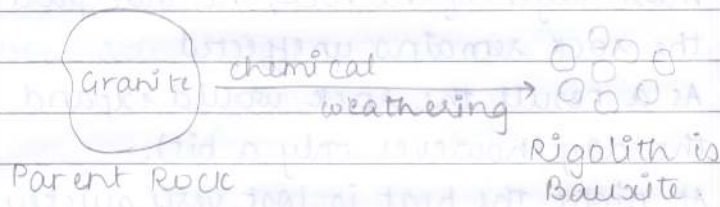 Granite
chemical
weathering
Parent Rock
Rigolith is
Bauxite